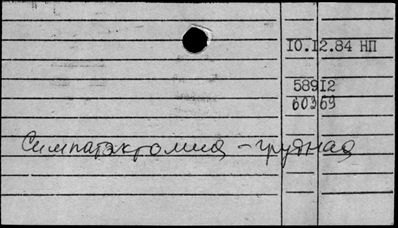 10.12.84 НП
58912
60369
Симпатэктомия - грудная